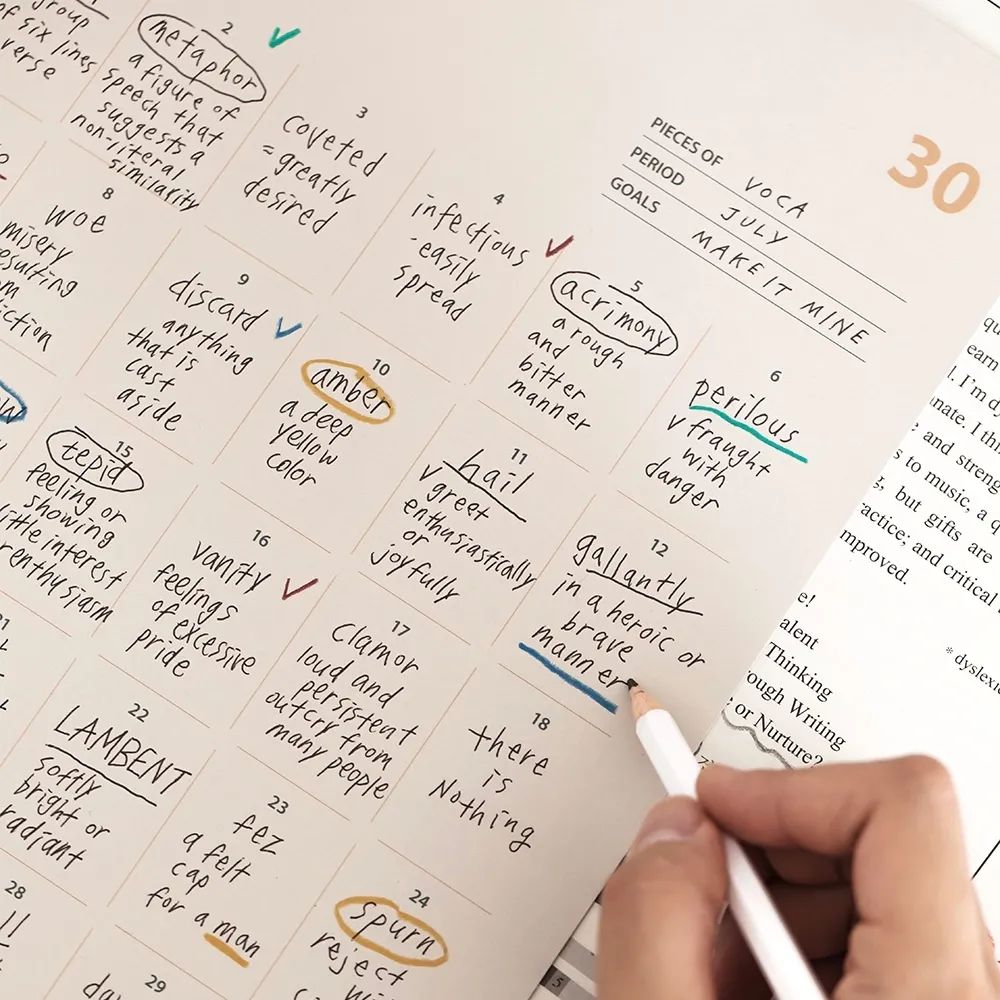 group
of six lines
verse
2
metaphor
a figure of
speech that
suggests a
non-literal
similarity
3
coveted
= greatly
desired
4
infectious
- easily
spread
5
acrimony
a rough
and
bitter
manner
6
perilous
✓ fraught
with
danger
PIECES OF VOCA
PERIOD JULY
GOALS MAKE IT MINE
30
8
woe
misery
resulting
9
discard
anything
that is
cast
aside
10
amber
a deep
yellow
color
11
hail
✓ greet
enthusiastically
or
joyfully
12
gallantly
in a heroic or
brave
manner
15
tepid
feeling or
showing
little interest
16
vanity
feelings
of excessive
pride
17
clamor
loud and
persistent
outcry from
many people
18
there
is
Nothing
22
LAMBENT
softly
bright or
radiant
23
fez
a felt
cap
for a man
24
spurn
reject
28
29
earn
I'm
I thi
and streng
s to music, a q
but gifts are
ractice; and critical
mproved.
e!
alent
Thinking
ough Writing
; or Nurture?
* dyslexi
5